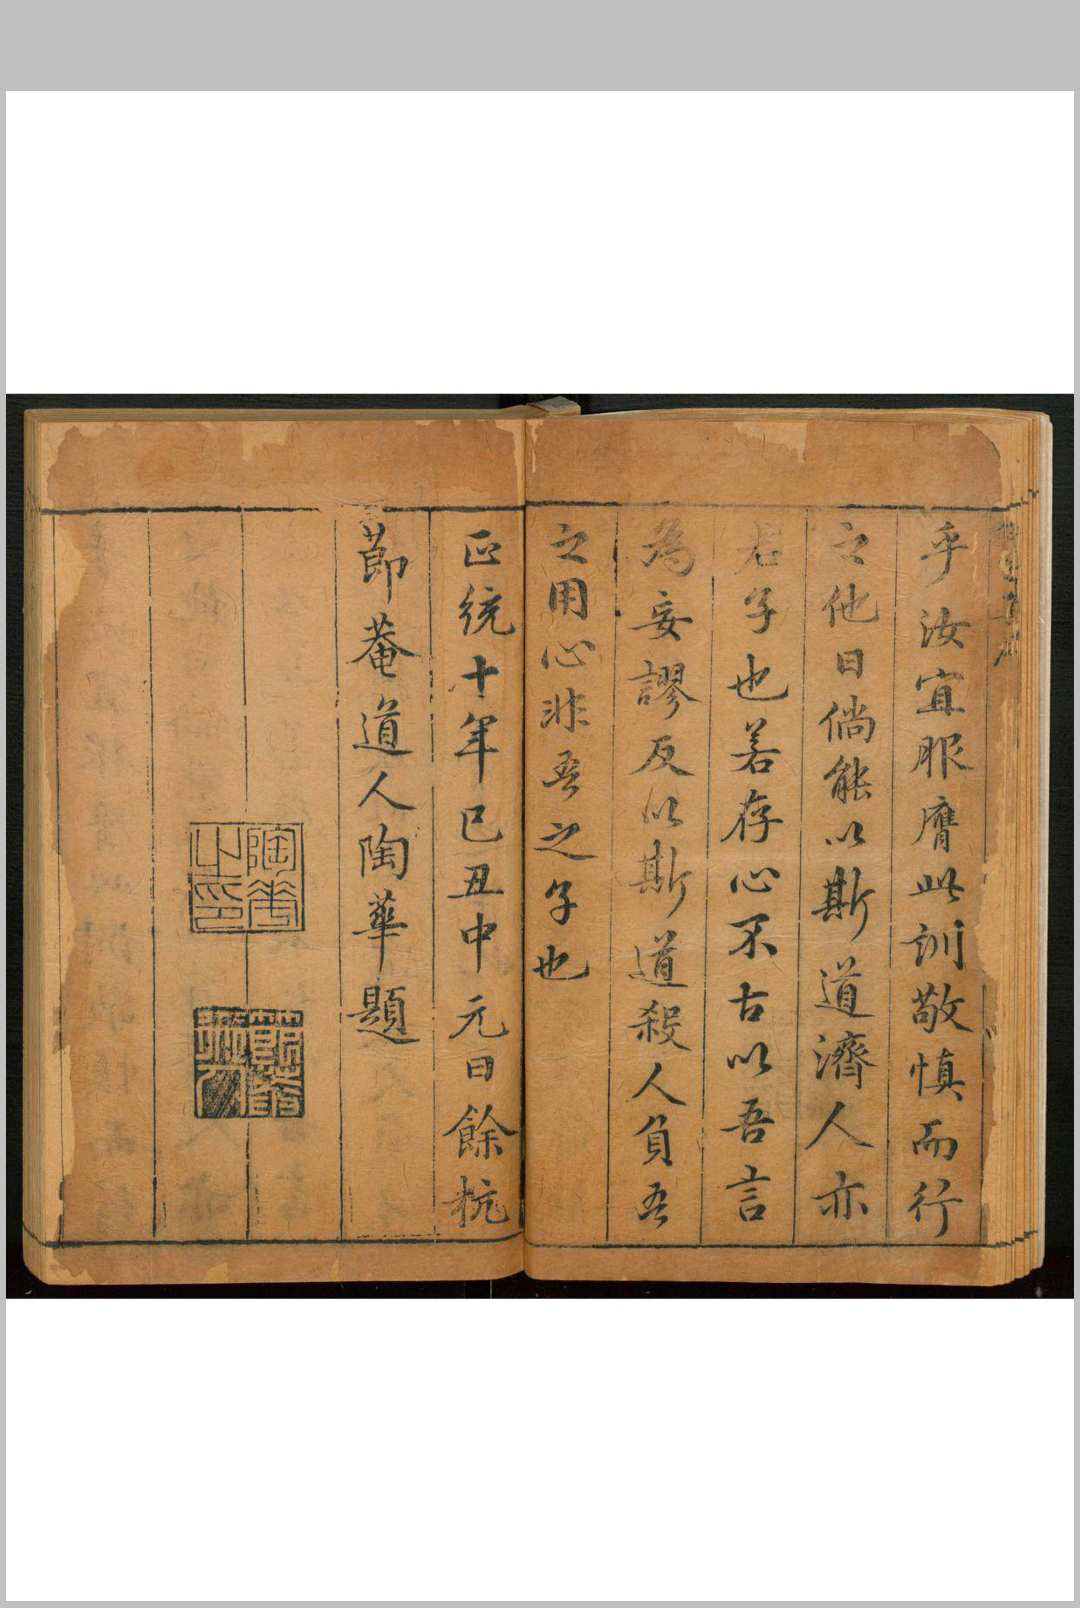 乎汝宜服膺此訓敬慎而行
之他日倘能以斯道濟人亦
君子也若存心不古以吾言
為妄謬反以斯道殺人負吾
之用心非吾之子也
正統十年己丑中元日餘杭
節菴道人陶華題
陶華之印